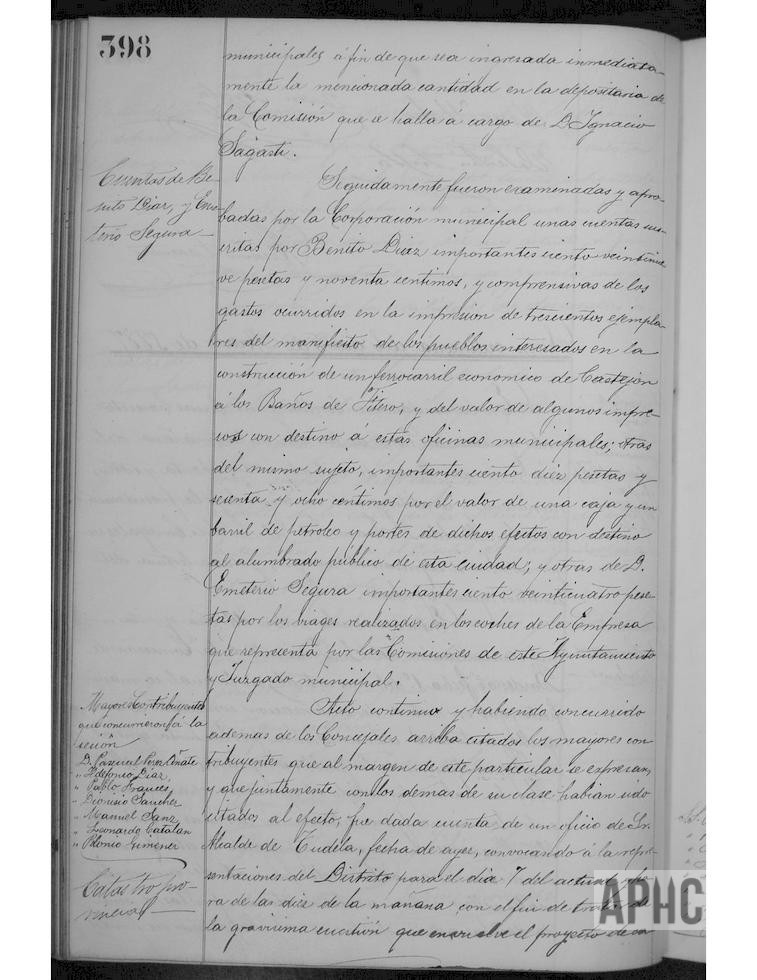 398
municipales á fin de que sea ingresada inmediata-
mente la mencionada cantidad en la depositaria de
la Comisión que se halla á cargo de D. Ignacio
Sagasti.
Cuentas de Be-
nito Diaz, y Eme-
terio Segura
Seguidamente fueron examinadas y apro-
badas por la Corporación municipal unas cuentas sus-
critas por Benito Diaz importantes ciento veintinue
ve pesetas y noventa centimos, y comprensivas de los
gastos ocurridos en la impresión de trescientos ejempla-
res del manifiesto de los pueblos interesados en la
construcción de un ferrocarril economico de Castejon
á los Baños de Fitero, y del valor de algunos impre-
sos con destino á estas oficinas municipales; otras
del mismo sujeto, importantes ciento diez pesetas y
sesenta y ocho céntimos por el valor de una caja y un
barril de petroleo y portes de dichos efectos con destino
al alumbrado publico de esta ciudad; y otras de D.
Emeterio Segura importantes ciento veinticuatro pese-
tas por los viages realizados en los coches de la Empresa
que representa por las Comisiones de este Ayuntamiento
y Juzgado municipal.
Mayores Contribuyentes
que concurrieron á la
sesión
D. Pascual Perez Oñate
" Ildefonso Diaz
" Pablo Frances
" Dionisio Sanchez
" Manuel Sanz
" Leonardo Catalan
" Polonio Gimenez
Acto continuo y habiendo concurrido
ademas de los Concejales arriba citados los mayores con
tribuyentes que al margen de este particular se expresan,
y que juntamente con los demas de su clase habian sido
citados al efecto, fue dada cuenta de un oficio de Sr.
Alcalde de Tudela, fecha de ayer, convocando á la repre-
Catastro pro-
vincial
sentaciones del Distrito para el dia 7 del actual y ho
ra de las diez de la mañana con el fin de tratar de
la gravisima cuestión que envuelve el proyecto de ca
APHC